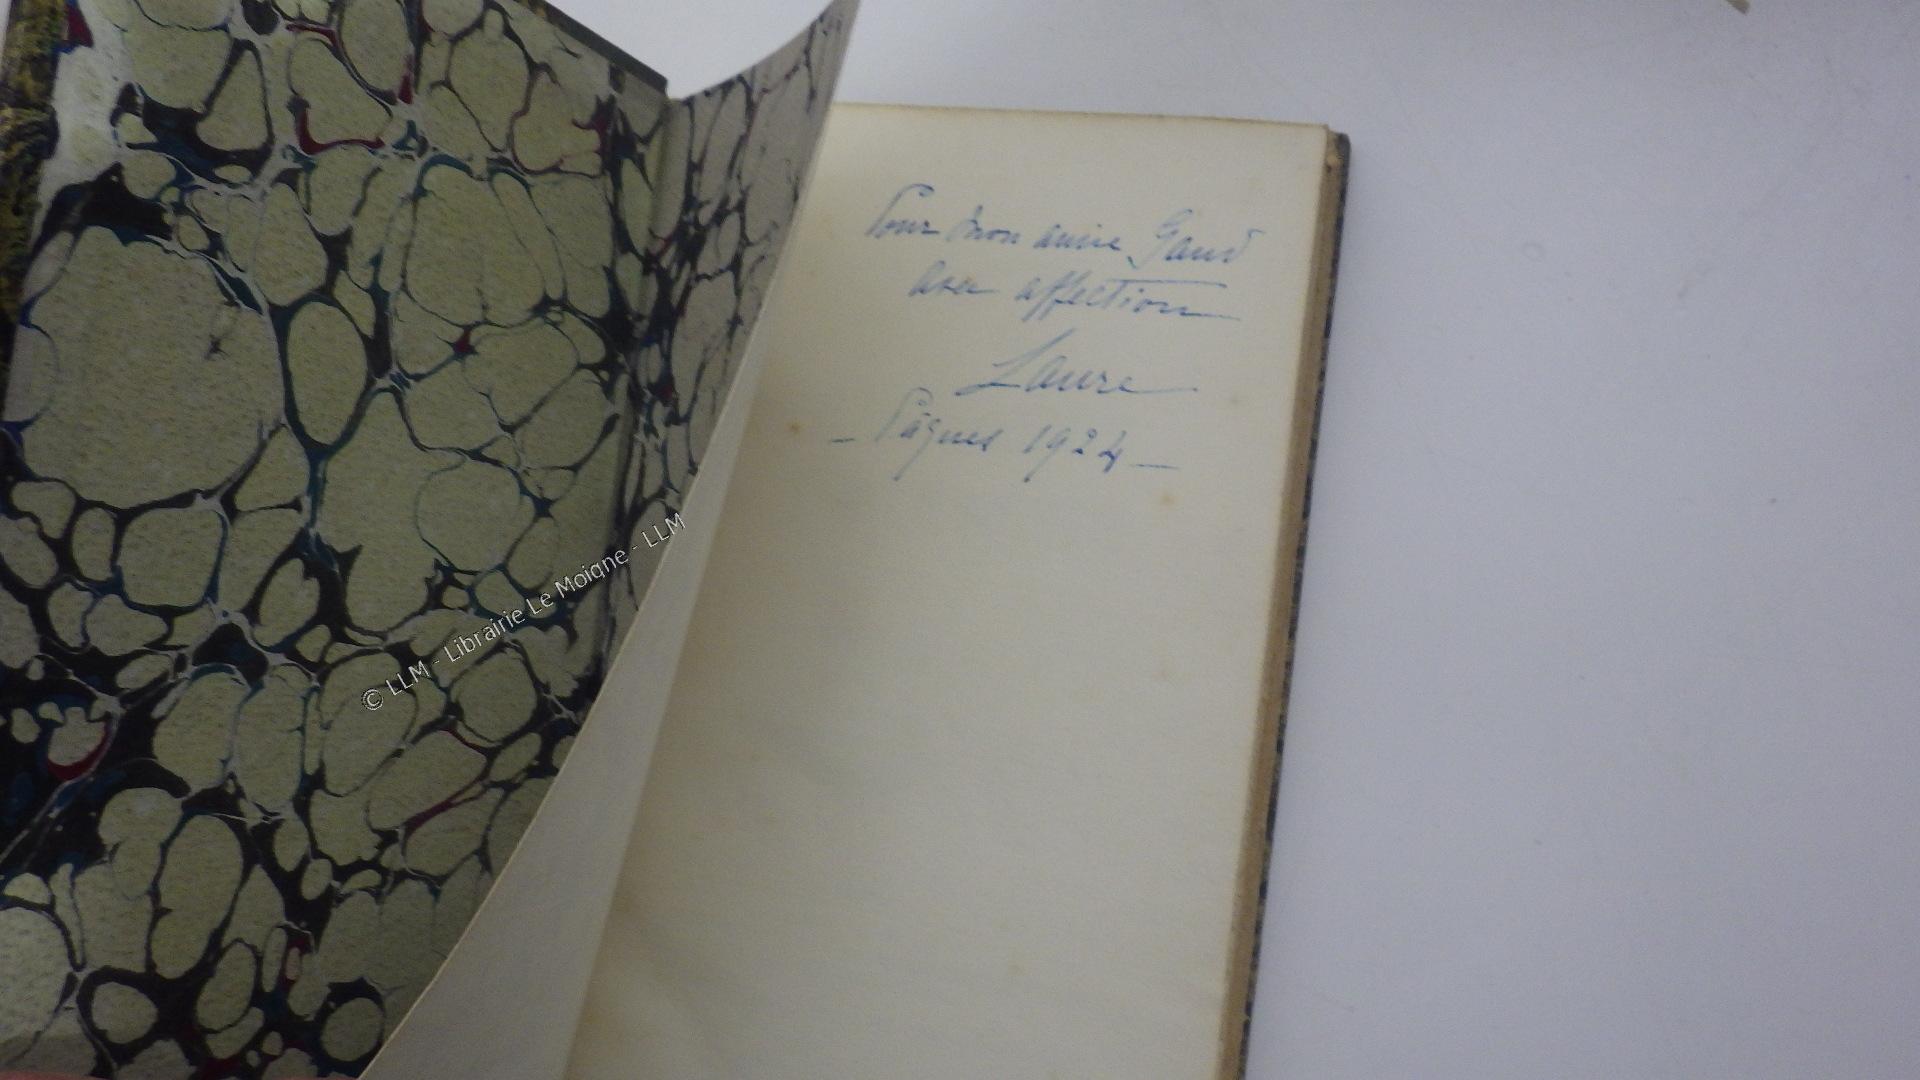 Pour mon amie Gaud
avec affection
Laure
- Pâques 1924 -
© LLM - Librairie Le Moigne - LLM